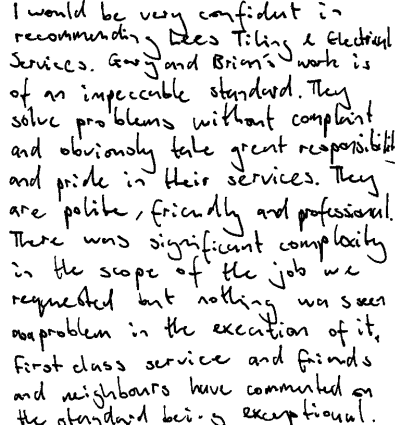 I would be very confident in
recommending Lees Tiling & Electrical
Services. Gary and Brian's work is
of an impeccable standard. They
solve problems without complaint
and obviously take great responsibility
and pride in their services. They
are polite, friendly and professional.
There was significant complexity
in the scope of the job we
requested but nothing was seen
as a problem in the execution of it.
First class service and friends
and neighbours have commented on
the standard being exceptional.